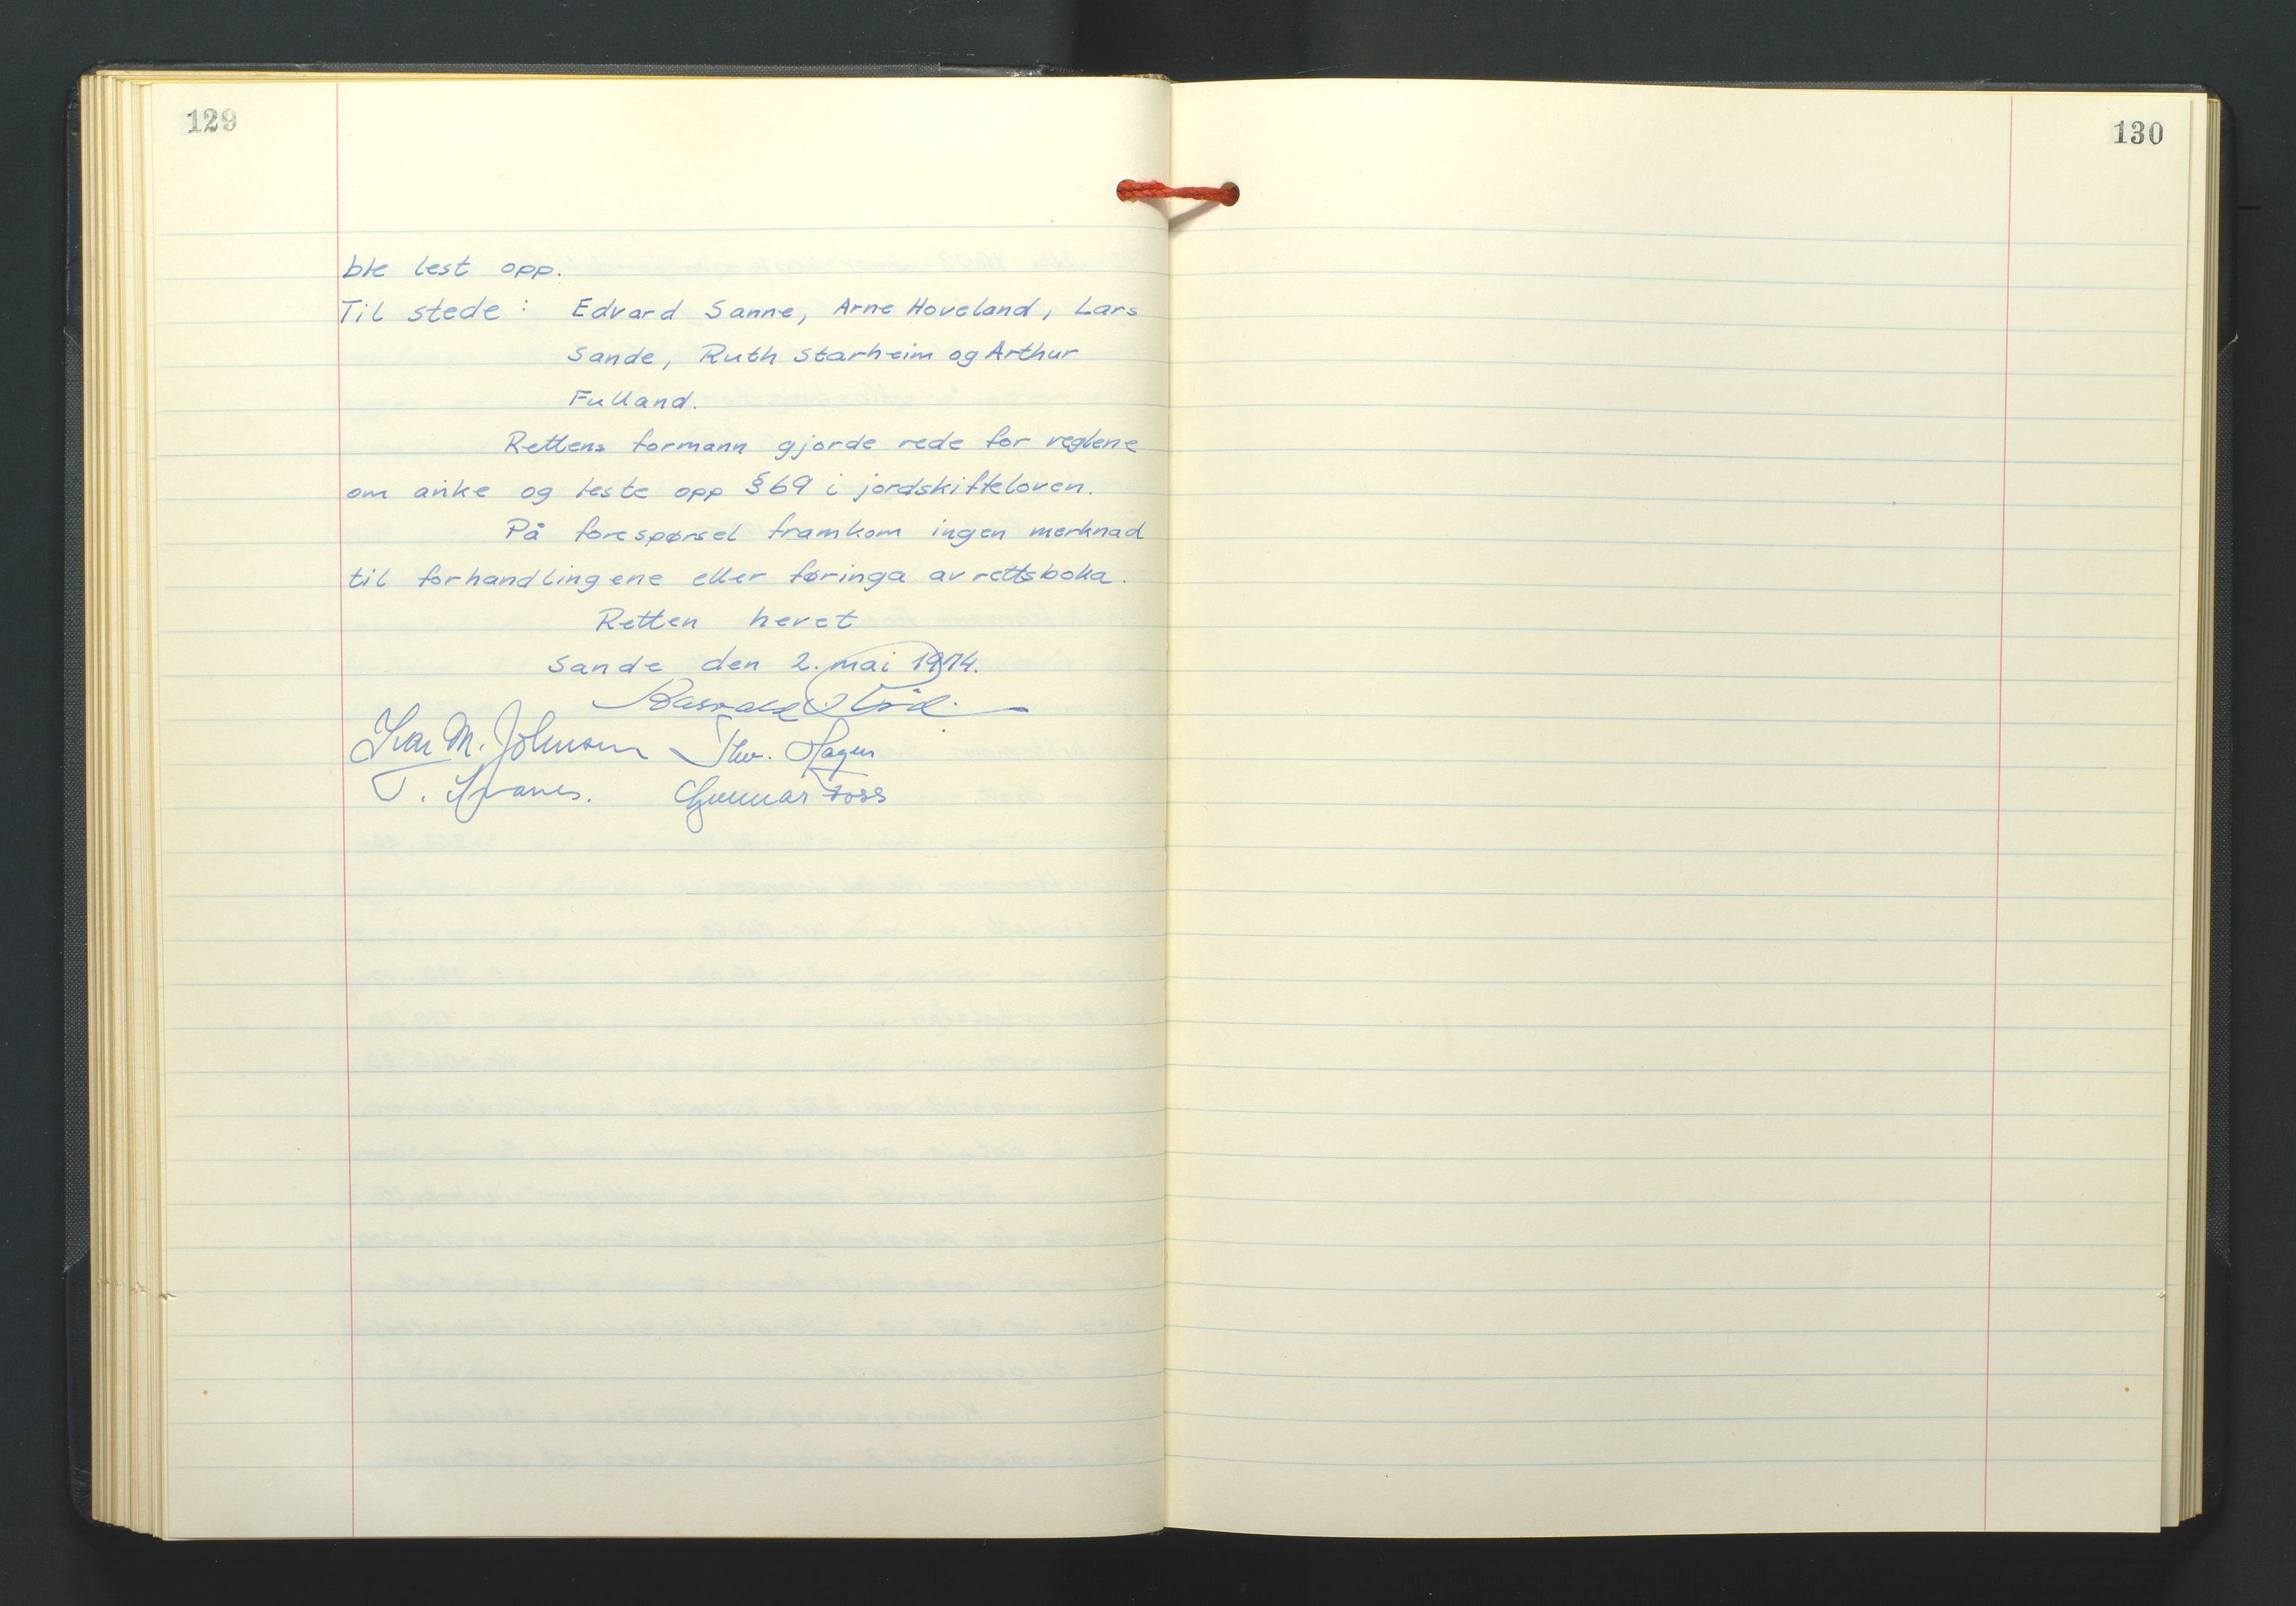 129
ble lest opp.
Til stede : Edvard Sanne, Arne Hoveland, Lars
Sande, Ruth Starheim og Arthur
Fulland.
Rettens formann gjorde rede for reglene
om anke og leste opp § 69 i jordskifteloven.
På forespørsel framkom ingen merknad
til forhandlingene eller føringa av rettsboka.
Retten hevet
Sande den 2. mai 1974.
Ivar M. Johnsen Thv. Hagen
T. Gunnar Foss
130